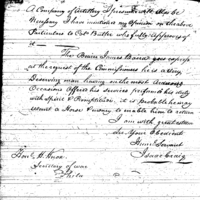 A Company of Artillery I presume will also be
Necessary I have inclosed my Opinion on the above
Particulars to Capt. Butler who fully Approves of
it —
The Bearer James Baird goes express
at the request of the Commissioners he is a very
Deserving man having on the most Arduous
Occasions offered his services performed his duty
with Spirit & Punctuality it is probable he may
want a Horse & money to enable him to return
I am with great esteem
Sir Your Obedient
Hum. Servant
Isaac Craig
Honl. H. Knox
Secretary of war
Phila